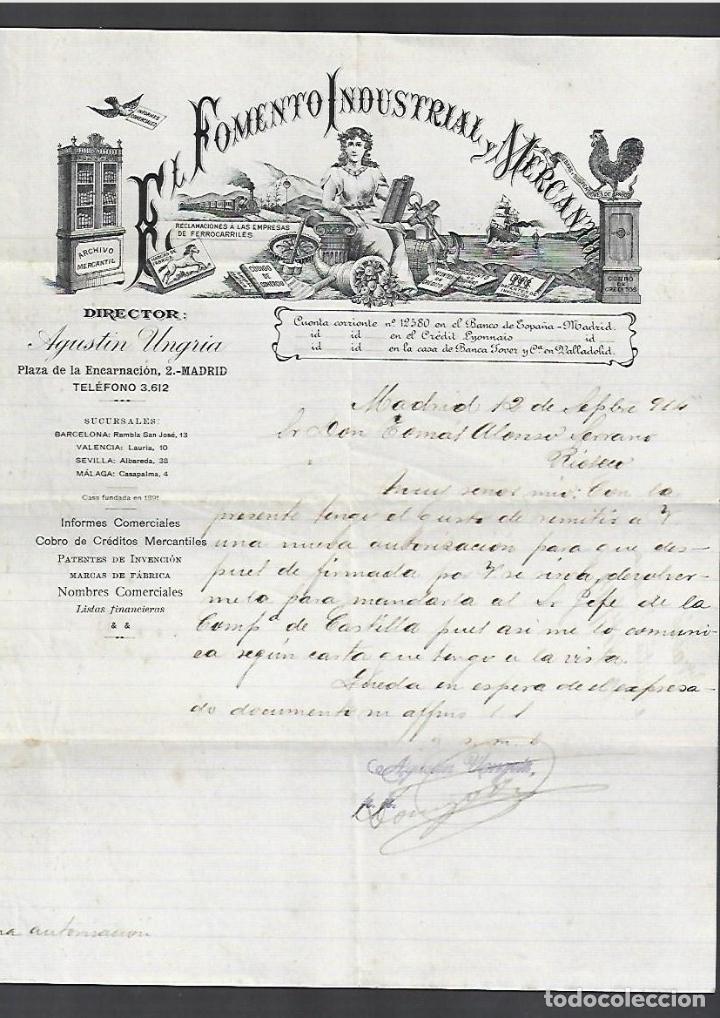 EL FOMENTO INDUSTRIAL y MERCANTIL
INFORMES COMERCIALES
ARCHIVO
MERCANTIL
RECLAMACIONES A LAS EMPRESAS
DE FERROCARRILES
CODIGO
DE
COMERCIO
COBRO
DE
CRÉDITOS
DIRECTOR:
Agustín Ungría
Plaza de la Encarnación, 2.-MADRID
TELÉFONO 3.612
Cuenta corriente nº 12580 en el Banco de España-Madrid.
id id en el Crédit Lyonnais id
id id en la casa de Banca Jover y Cª en Valladolid.
SUCURSALES:
BARCELONA: Rambla San José, 13
VALENCIA: Lauria, 10
SEVILLA: Albareda, 38
MÁLAGA: Casapalma, 4
Casa fundada en 189
Informes Comerciales
Cobro de Créditos Mercantiles
PATENTES DE INVENCIÓN
MARCAS DE FÁBRICA
Nombres Comerciales
Listas financieras
& &
Madrid 12 de Sepbre 914
Sr Don Tomás Alonso Serrano
Rioseco
Muy señor mio: Con la
presente tengo el gusto de remitir a V
una nueva autorizacion para que des-
pues de firmada por V se sirva devolver-
mela para mandarla al Sr Jefe de la
Compª de Castilla pues asi me lo comuni-
ca según carta que tengo a la vista.
Queda en espera de el expresa-
do documento su affmo
Agustin Ungria
p. p.
autorizacion
todocoleccion